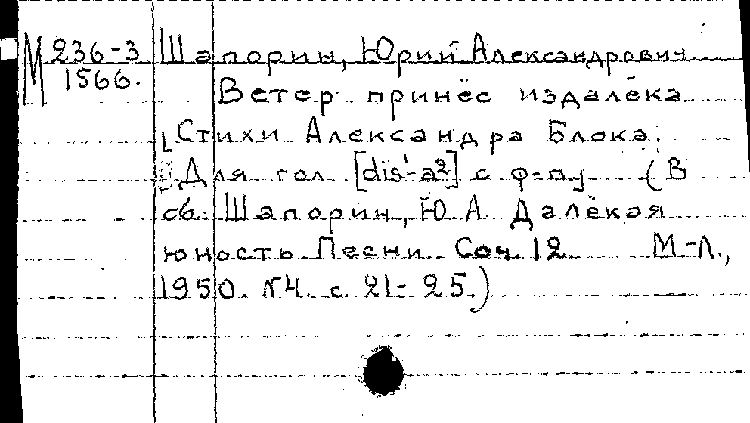 М 236-3 Шапорин, Юрий Александрович
1566. Ветер принёс издалёка
Стихи Александра Блока.
Для гол [dis¹-a²] с ф-п. (В
сб. Шапорин, Ю А Далёкая
юность Песни. Соч. 12 М-Л.,
1950. №4. с. 21-25.)